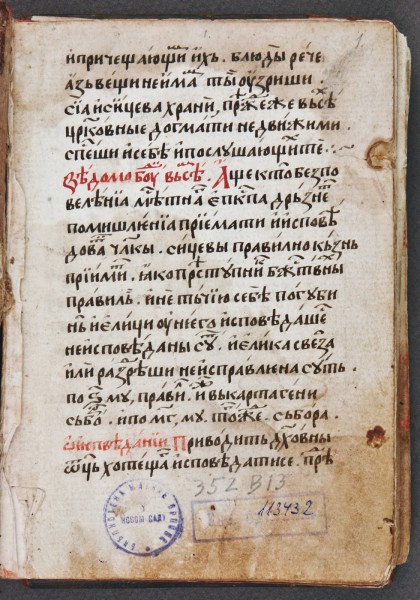 и причещающи ихъ. блюды рече
азь вещи не има^м ты оузриши.
сїа и сицева храни, прⷤежеже въсѣⷯ
цр҃ковные догмати недвижими.
спⷭеши и себѣ и послушающⷯите.
зѣло молю боу въсѣⷯ. Аще кто без по
велѣнїа мѣстна епⷭкпа дрьзне
помишленїа прїемати и исповѣ
довати члⷦы. сицевы правилно казнь
прїиметь. iако прⷭѣступни бжⷭтвны
правиль. и не тъчїю себе погуби
нь и елици оу него исповѣдаше
не исповѣданы сⷮу. и елика свеза
или разⷣреши неисправлена суть.
по ѕ҃му, правⷧи. и въ картагени
събоⷬ. и по м҃г, му. тоже събора.
ѡ исповѣданїи Приводить дх҃овны
ѡц҃ь хотещаⷢ исповѣдатисе. прⷣѣ
352 В13
113432
БИБЛИОТЕКА МАТИЦЕ СРПСКЕ
У
НОВОМ САДУ